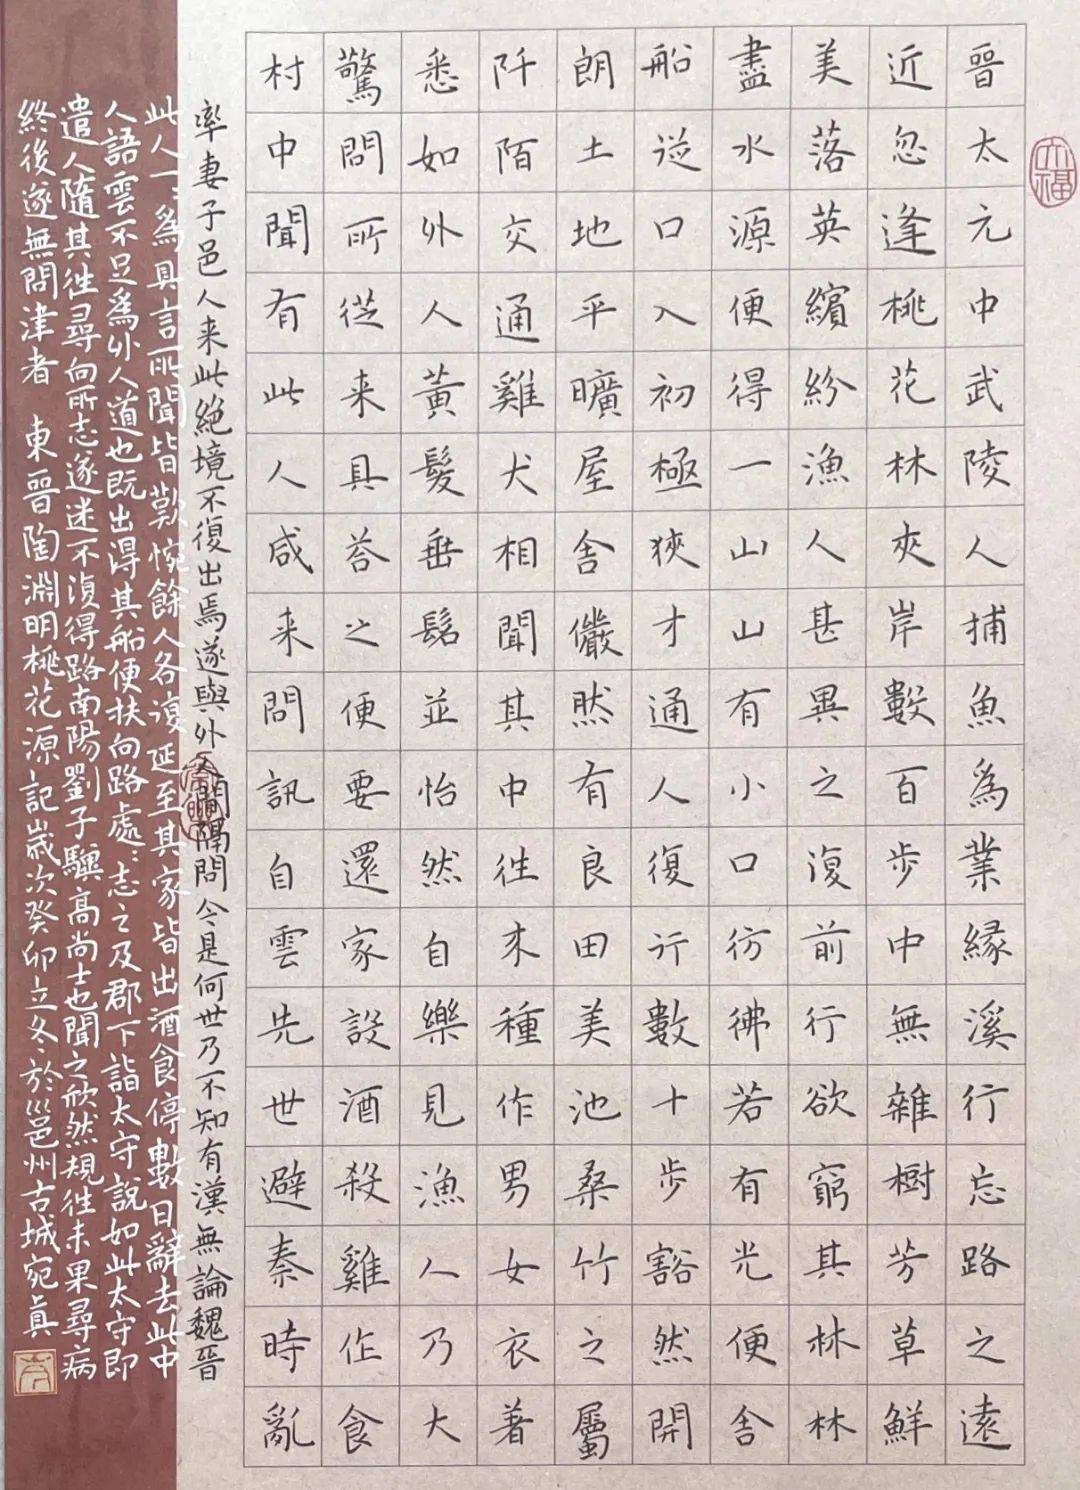 晉太元中武陵人捕魚為業緣溪行忘路之遠
近忽逢桃花林夾岸數百步中無雜樹芳草鮮
美落英繽紛漁人甚異之復前行欲窮其林林
盡水源便得一山山有小口彷彿若有光便舍
船從口入初極狹才通人復行數十步豁然開
朗土地平曠屋舍儼然有良田美池桑竹之屬
阡陌交通雞犬相聞其中往來種作男女衣著
悉如外人黃髮垂髫並怡然自樂見漁人乃大
驚問所從来具答之便要還家設酒殺雞作食
村中聞有此人咸来問訊自雲先世避秦時亂
率妻子邑人来此絕境不復出焉遂與外人間隔問今是何世乃不知有漢無論魏晉
此人一:為具言所聞皆歎惋餘人各復延至其家皆出酒食停數日辭去此中
人語雲不足為外人道也既出得其船便扶向路處:志之及郡下詣太守說如此太守即
遣人隨其往尋向所志遂迷不復得路南陽劉子驥高尚士也聞之欣然規往未果尋病
終後遂無問津者 東晉陶淵明桃花源記歲次癸卯立冬於邕州古城宛真
六福